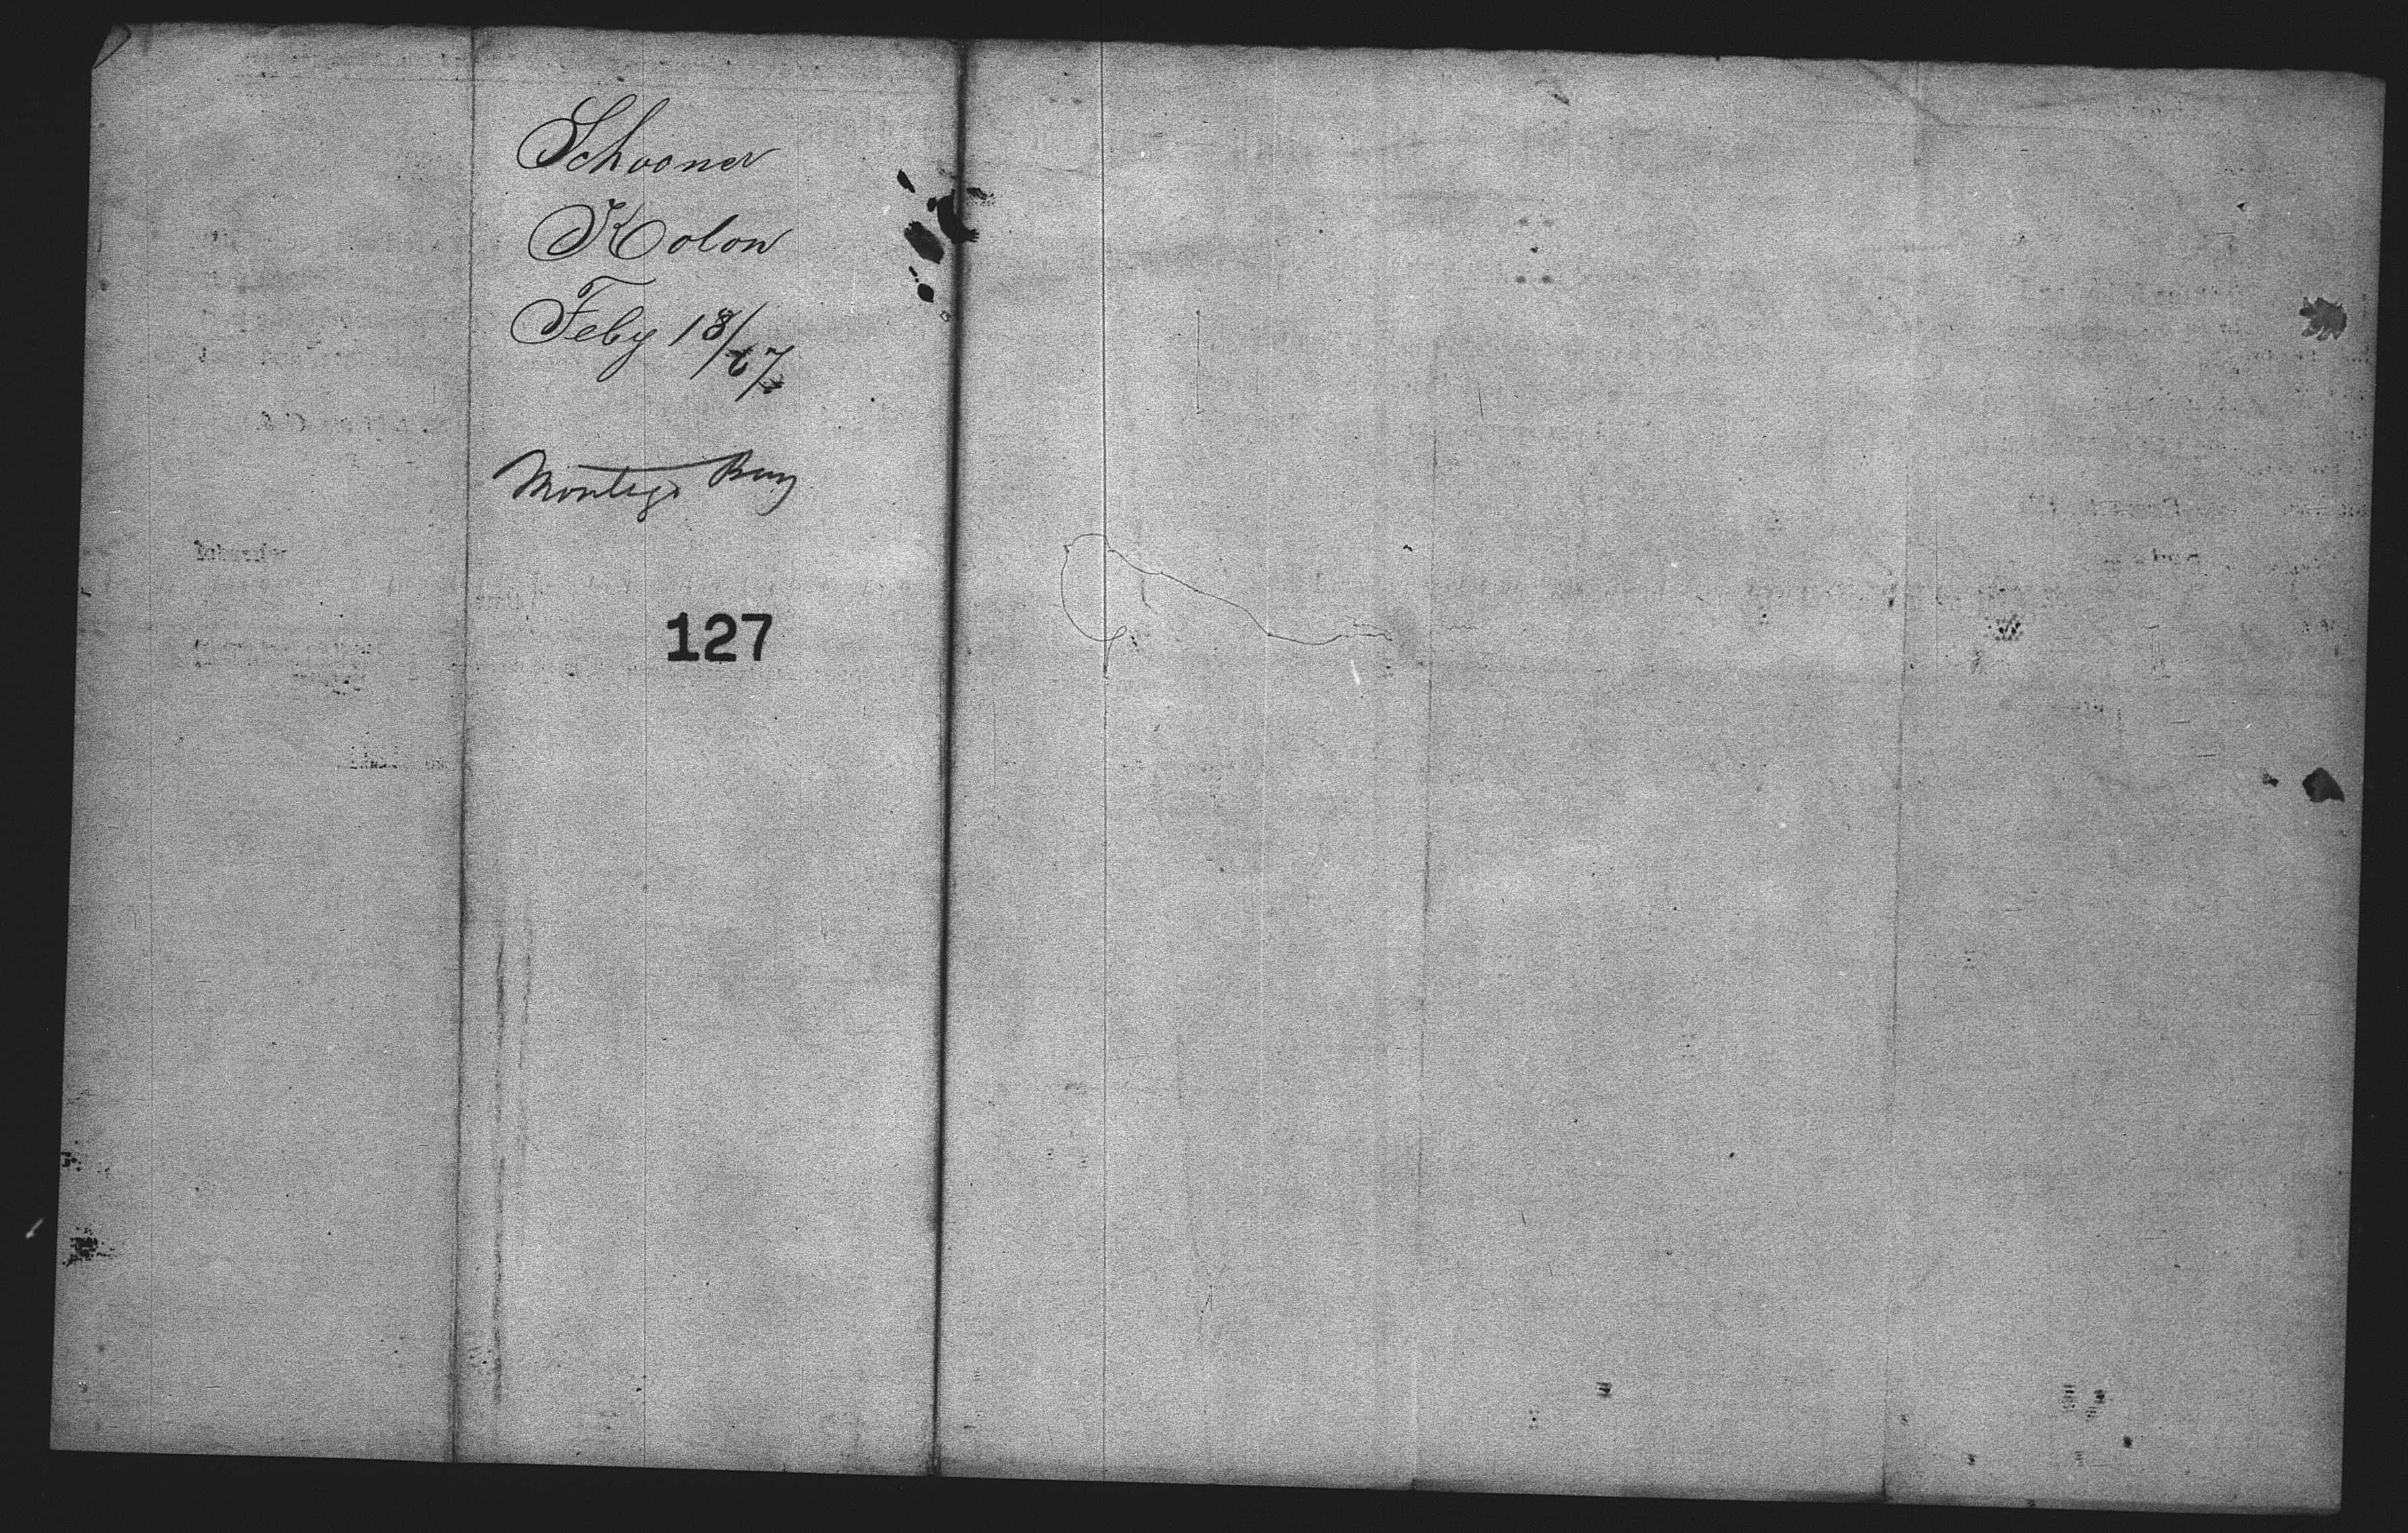 Schooner
Kolon
Feby 18/67
Montego Bay
127